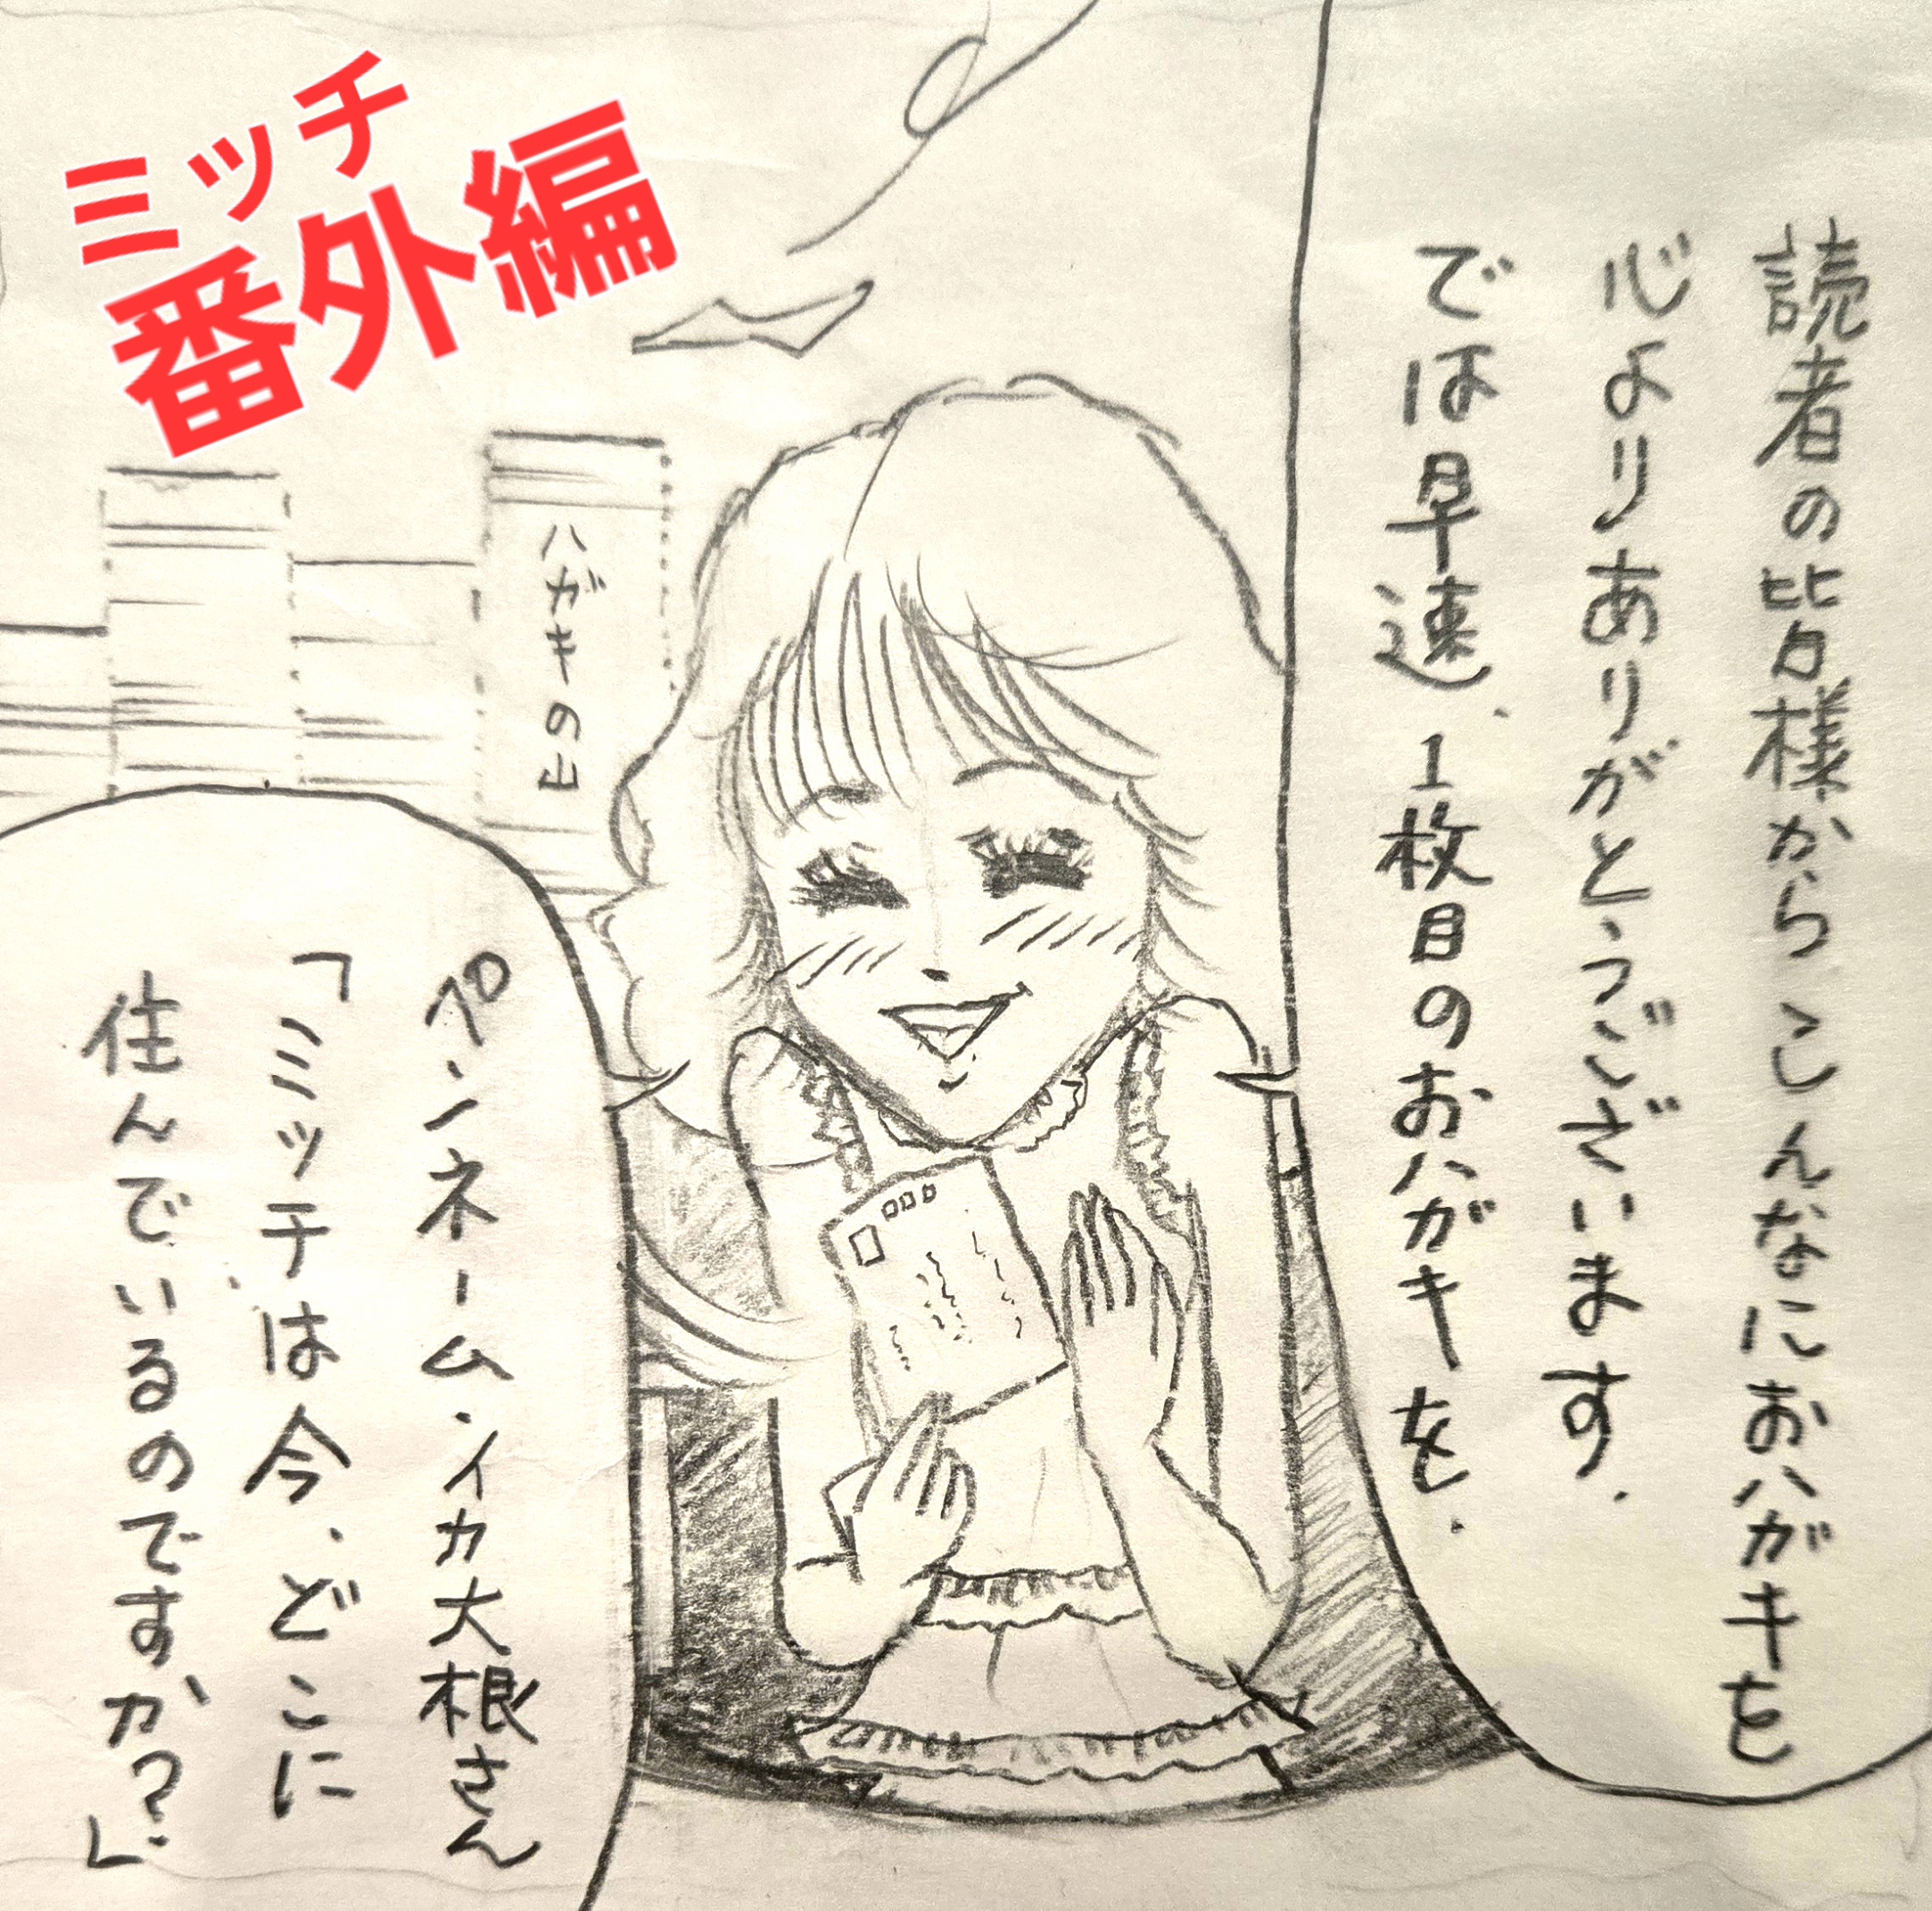 ミッチ
番外編
読者の皆様からこんなにおハガキを
心よりありがとうございます.
では早速、1枚目のおハガキを.
ハガキの山
ペンネーム・イカ大根さん
「ミッチは今、どこに
住んでいるのですか?」